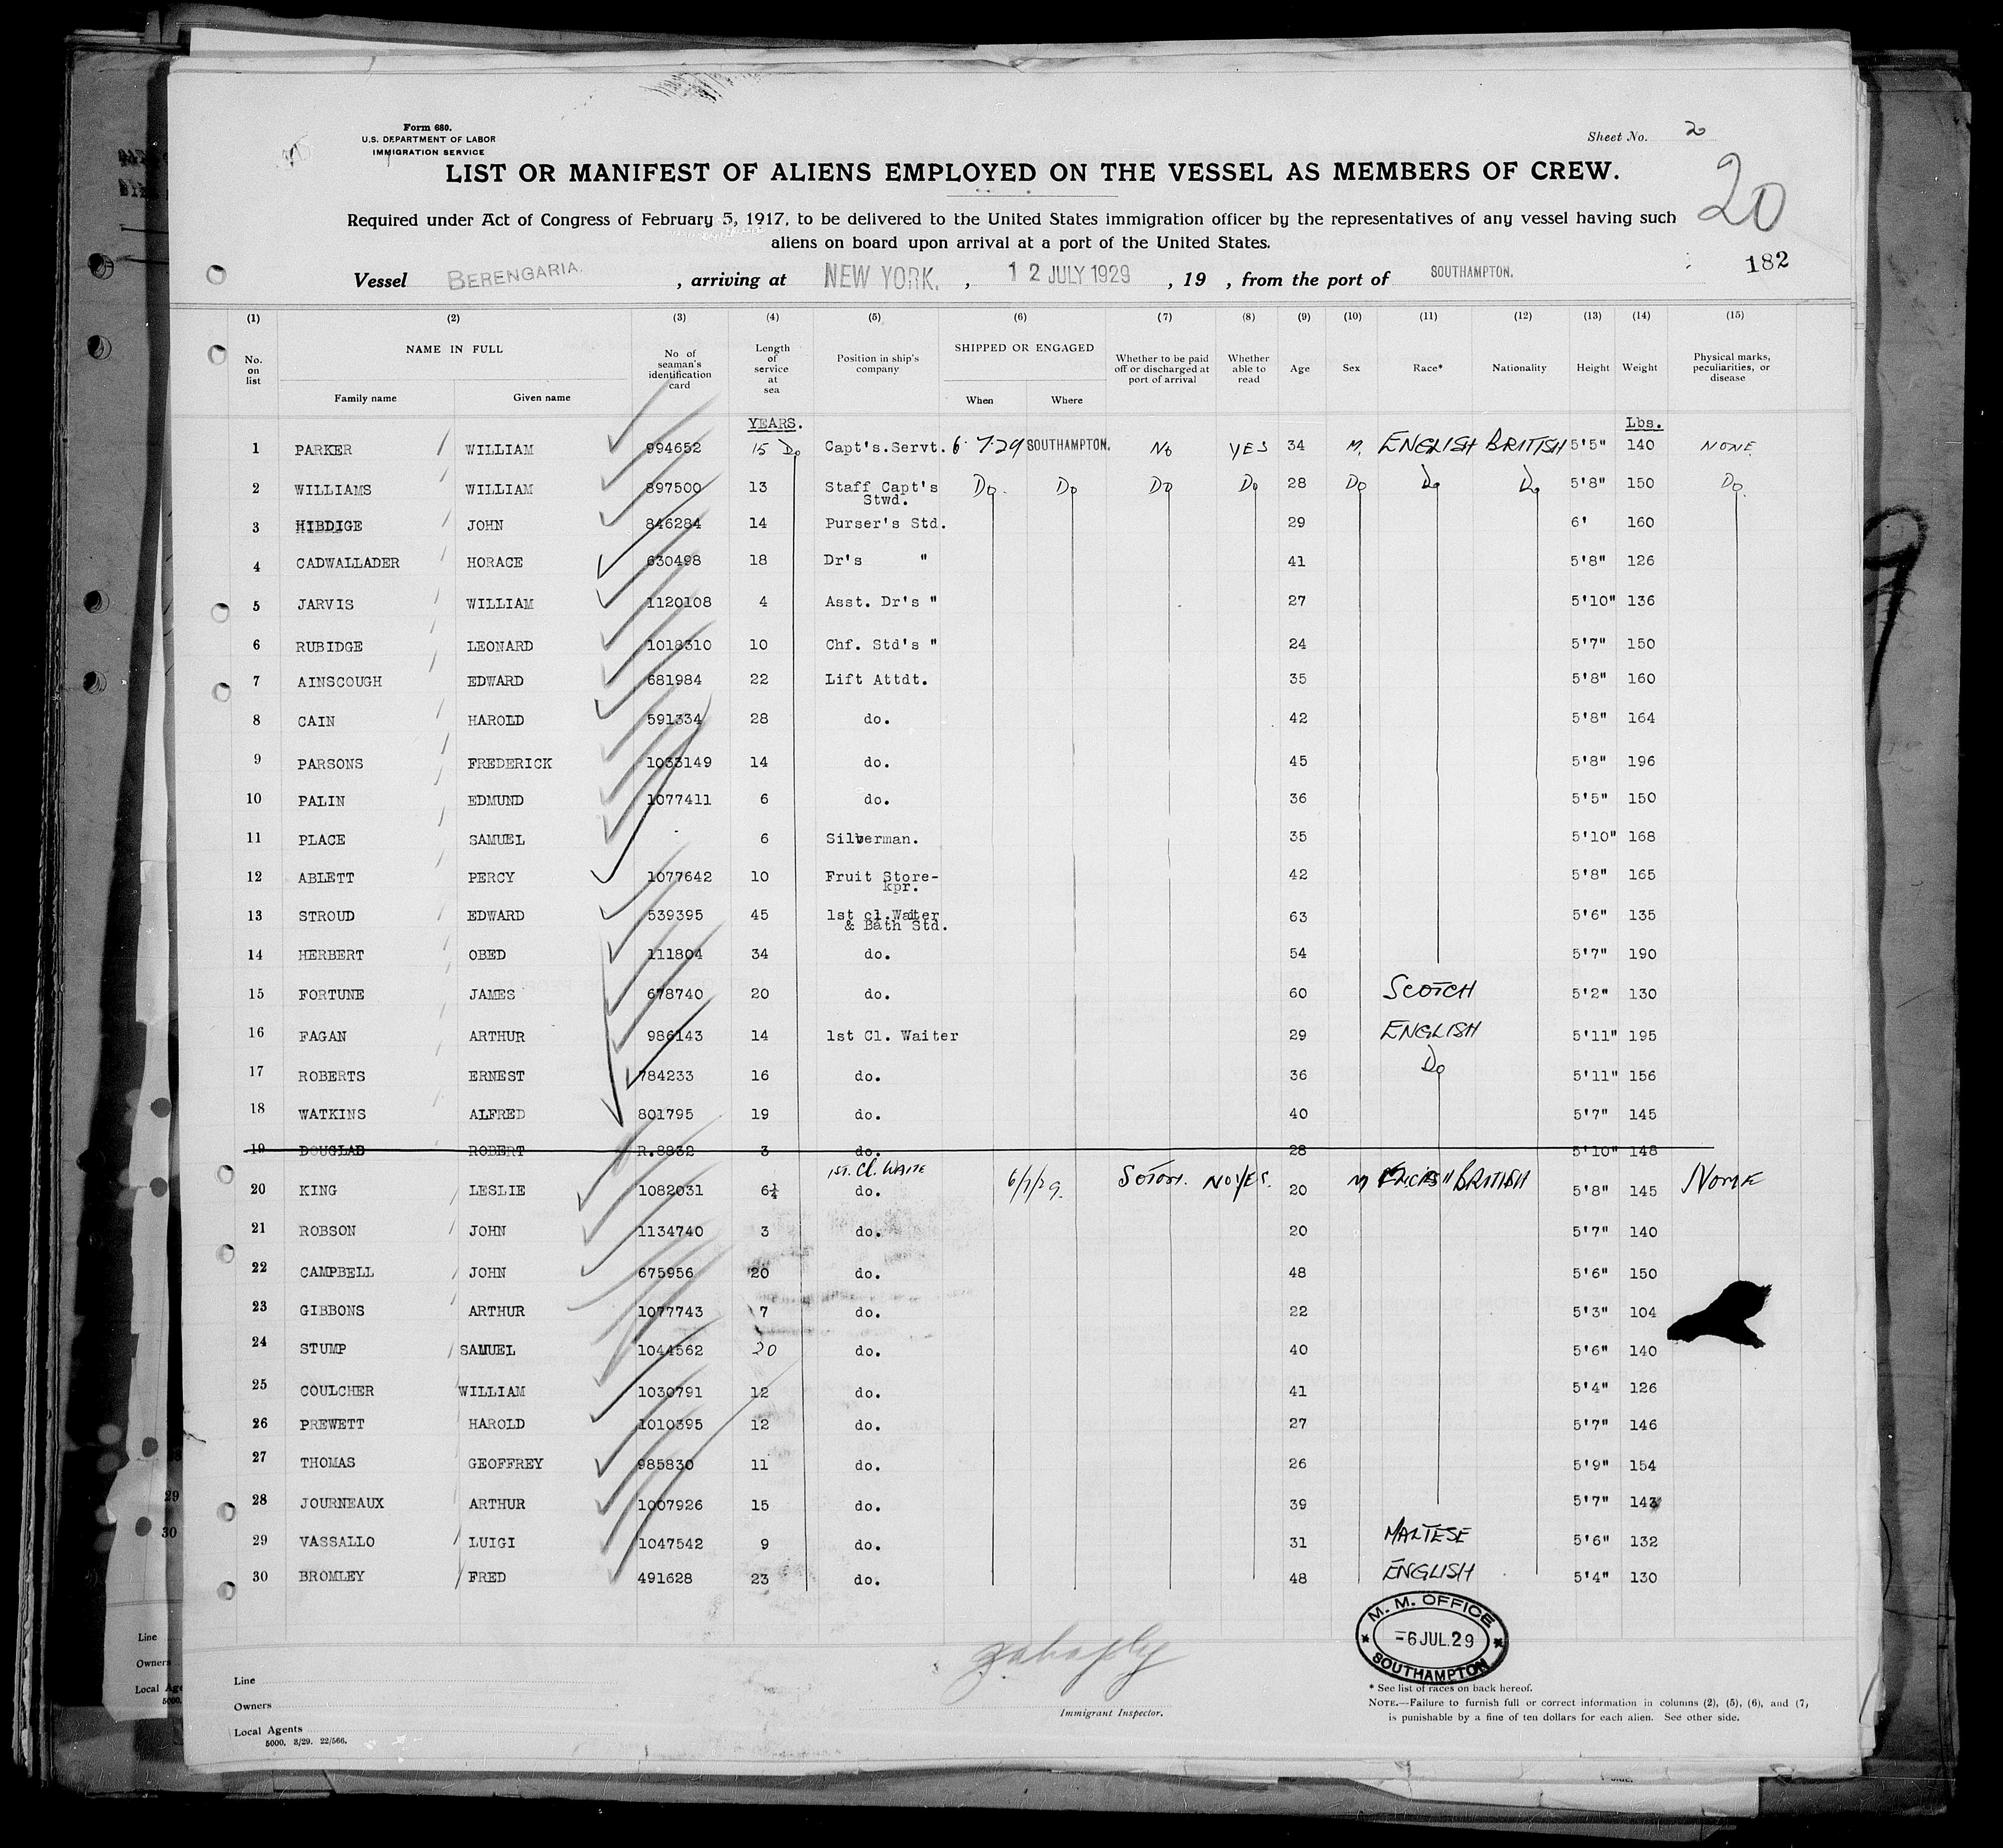 Form 680.
U.S. DEPARTMENT OF LABOR
IMMIGRATION SERVICE
Sheet No. 20
LIST OR MANIFEST OF ALIENS EMPLOYED ON THE VESSEL AS MEMBERS OF CREW.
20
Required under Act of Congress of February 5, 1917, to be delivered to the United States immigration officer by the representatives of any vessel having such
aliens on board upon arrival at a port of the United States.
182
Vessel BERENGARIA. , arriving at NEW YORK. , 12 JULY 1929 , 19 , from the port of SOUTHAMPTON.
(1) (2) (3) (4) (5) (6) (7) (8) (9) (10) (11) (12) (13) (14) (15)
No. on list NAME IN FULL Family name Given name No of seaman's identification card Length of service at sea Position in ship's company SHIPPED OR ENGAGED When Where Whether to be paid off or discharged at port of arrival Whether able to read Age Sex Race* Nationality Height Weight Physical marks, peculiarities, or disease
YEARS. Lbs.
1 PARKER WILLIAM 994652 15 Do Capt's.Servt. 6 7·29 SOUTHAMPTON. No YES 34 M. ENGLISH BRITISH 5'5" 140 NONE
2 WILLIAMS WILLIAM 897500 13 Staff Capt's Stwd. Do. Do Do Do 28 Do Do Do 5'8" 150 Do.
3 HIBDIGE JOHN 846284 14 Purser's Std. 29 6' 160
4 CADWALLADER HORACE 630498 18 Dr's " 41 5'8" 126
5 JARVIS WILLIAM 1120108 4 Asst. Dr's " 27 5'10" 136
6 RUBIDGE LEONARD 1018310 10 Chf. Std's " 24 5'7" 150
7 AINSCOUGH EDWARD 681984 22 Lift Attdt. 35 5'8" 160
8 CAIN HAROLD 591334 28 do. 42 5'8" 164
9 PARSONS FREDERICK 1033149 14 do. 45 5'8" 196
10 PALIN EDMUND 1077411 6 do. 36 5'5" 150
11 PLACE SAMUEL 6 Silverman. 35 5'10" 168
12 ABLETT PERCY 1077642 10 Fruit Store-kpr. 42 5'8" 165
13 STROUD EDWARD 539395 45 1st cl.Waiter & Bath Std. 63 5'6" 135
14 HERBERT OBED 111804 34 do. 54 5'7" 190
15 FORTUNE JAMES 678740 20 do. 60 SCOTCH 5'2" 130
16 FAGAN ARTHUR 986143 14 1st Cl. Waiter 29 ENGLISH 5'11" 195
17 ROBERTS ERNEST 784233 16 do. 36 Do 5'11" 156
18 WATKINS ALFRED 801795 19 do. 40 5'7" 145
19 DOUGLAS ROBERT R.8832 3 do. 28 5'10" 148
1ST. Cl. WAITE
20 KING LESLIE 1082031 6¼ do. 6/7/29. SOTON. NO YES. 20 M ENGLISH BRITISH 5'8" 145 NONE
21 ROBSON JOHN 1134740 3 do. 20 5'7" 140
22 CAMPBELL JOHN 675956 20 do. 48 5'6" 150
23 GIBBONS ARTHUR 1077743 7 do. 22 5'3" 104
24 STUMP SAMUEL 1044562 20 do. 40 5'6" 140
25 COULCHER WILLIAM 1030791 12 do. 41 5'4" 126
26 PREWETT HAROLD 1010395 12 do. 27 5'7" 146
27 THOMAS GEOFFREY 985830 11 do. 26 5'9" 154
28 JOURNEAUX ARTHUR 1007926 15 do. 39 5'7" 143
29 VASSALLO LUIGI 1047542 9 do. 31 MALTESE 5'6" 132
30 BROMLEY FRED 491628 23 do. 48 ENGLISH 5'4" 130
M. M. OFFICE
-6 JUL.29
SOUTHAMPTON
Line
Owners
Local Agents
5000. 3/29. 22/566.
Immigrant Inspector.
* See list of races on back hereof.
NOTE.—Failure to furnish full or correct information in columns (2), (5), (6), and (7,
is punishable by a fine of ten dollars for each alien. See other side.
29
30
Line
Owners
Local Age
5000.